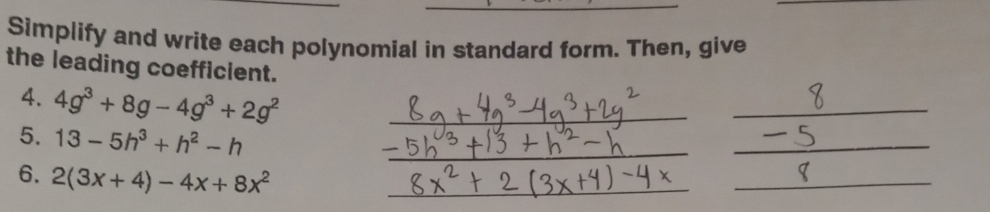 Simplify and write each polynomial in standard form. Then, give
the leading coefficient.
4. 4g³ + 8g − 4g³ + 2g² 8g + 4g³ − 4g³ + 2g² 8
5. 13 − 5h³ + h² − h −5h³ + 13 + h² − h −5
6. 2(3x + 4) − 4x + 8x² 8x² + 2 (3x+4) − 4x 8